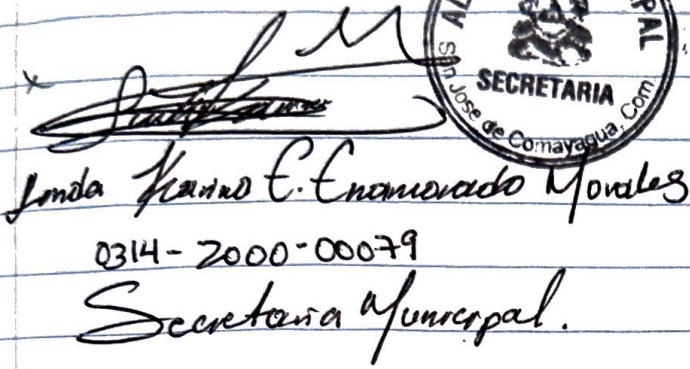 AL
PAL
SECRETARIA
San Jose de Comayagua, Com.
Linda Karina E. Enamorado Morales
0314-2000-00079
Secretaria Municipal.